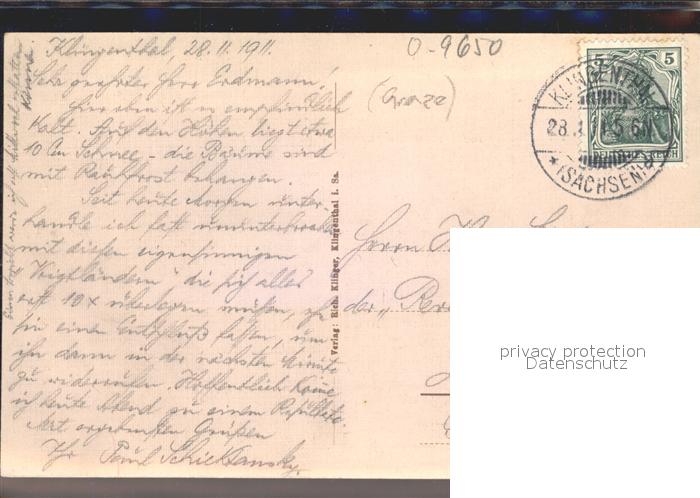 Klingenthal, 28.11.1911.
Sehr geehrter Herr Erdmann!
Hier oben ist es empfindlich
kalt. Auf den Höhen liegt etwa
10 Cm Schnee – die Bäume sind
mit Rauhfrost behangen.
Seit heute Morgen unter-
handle ich fast ununterbrochen
mit diesen eigensinnigen
"Voigtländern", die sich alles
erst 10 x überlegen müssen, ehe
sie einen Entschluß fassen, um
ihn dann in der nächsten Minute
zu widerrufen. Hoffentlich komme
ich heute Abend zu einem Resultate.
Mit ergebensten Grüßen
Ihr Paul Schicktansky.
Verlag: Rich. Klinger, Klingenthal i. Sa.
0-9650
(Graze)
5
KLINGENTHAL
28.11.11 5-6N
* (SACHSEN)
Herrn
der
privacy protection
Datenschutz